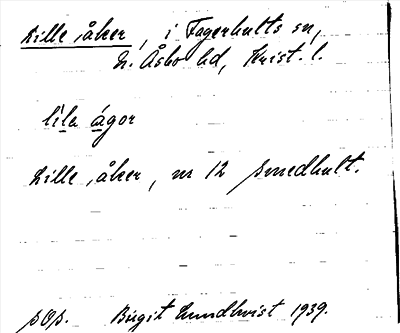 Lille åker, i Fagerhults sn,
N. Åsbo hd, Krist. l.
lìla ágor
Lille åker, nr 12 Smedhult.
Birgit Lundkvist 1939.